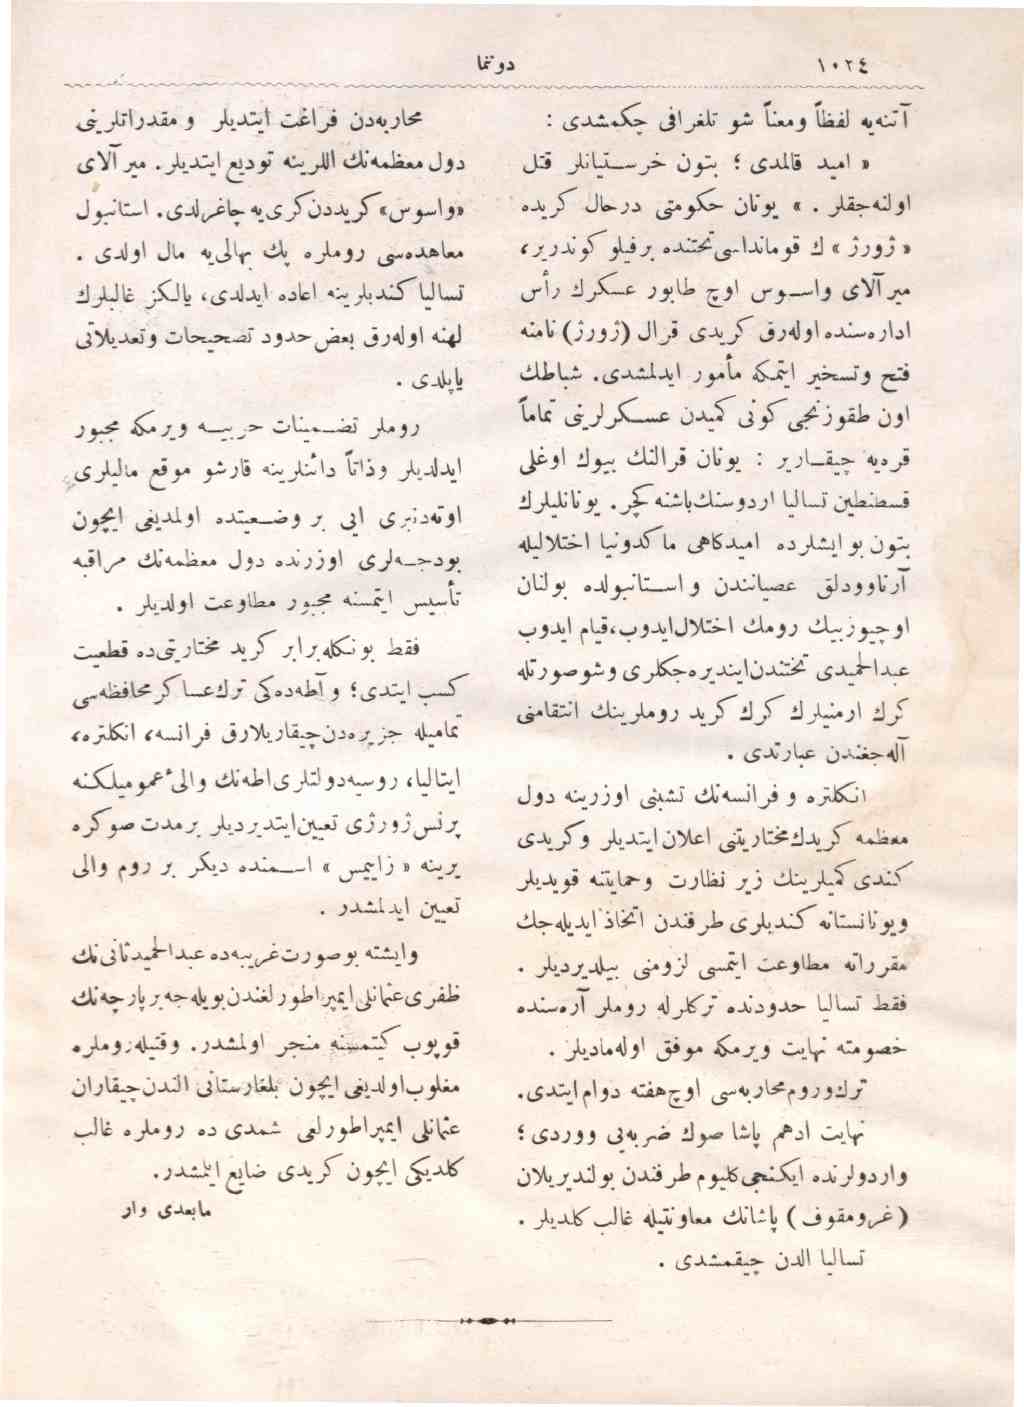 ١٠٢٤
دوننما
آتنه‌یه لفظاً ومعناً شو تلغرافی چکمشدی :
« امید قالمدی ؛ بتون خرستیانلر قتل
اولنه‌جقلر . » یونان حکومتی درحال کریده
« ژورژ » ك قومانداسی تحتنده برفیلو کوندریر،
میرآلای واسوس اوچ طابور عسکرك رأس
اداره‌سنده اوله‌رق کریدی قرال (ژورژ) نامنه
فتح وتسخیر ایتمکه مأمور ایدلمشدی. شباطك
اون طقوزنجی کونی کمیدن عسکرلرینی تماماً
قره‌یه چیقاریر : یونان قرالنك بیوك اوغلی
قسطنطین تسالیا اردوسنك باشنه کچر. یونانلیلرك
بتون بو ایشلرده امیدکاهی ماکدونیا اختلالیله
آرناوودلق عصیانندن و استانبولده بولنان
اوچیوزبیك رومك اختلال ایدوب،قیام ایدوب
عبدالحمیدی تختندن ایندیره‌جکلری وشو صورتله
کرك ارمنیلرك کرك کرید روملرینك انتقامنی
آله‌جغندن عبارتدی .
انکلتره و فرانسه‌نك تشبثی اوزرینه دول
معظمه کریدك مختاریتنی اعلان ایتدیلر وکریدی
کندی کمیلرینك زیر نظارت وحمایتنه قویدیلر
ویونانستانه کندیلری طرفندن اتخاذ ایدیله‌جك
مقرراته مطاوعت ایتمسی لزومنی بیلدیردیلر .
فقط تسالیا حدودنده ترکلرله روملر آره‌سنده
خصومته نهایت ویرمکه موفق اوله‌مادیلر .
ترك وروم محاربه‌سی اوچ هفته دوام ایتدی.
نهایت ادهم پاشا صوك ضربه‌یی ووردی ؛
واردولرنده ایکنجی کلیوم طرفندن بولندیریلان
(غرومقوف) پاشانك معاونتیله غالب کلدیلر .
تسالیا الدن چیقمشدی .
محاربه‌دن فراغت ایتدیلر و مقدراتلرینی
دول معظمه‌نك اللرینه تودیع ایتدیلر. میرآلای
«واسوس» کریددن کری‌یه چاغرلدی. استانبول
معاهده‌سی روملره پك بهالی‌یه مال اولدی .
تسالیا کندیلرینه اعاده ایدلدی، یالکز غالبلرك
لهنه اوله‌رق بعض حدود تصحیحات وتعدیلاتی
یاپلدی .
روملر تضمینات حربیه ویرمکه مجبور
ایدلدیلر وذاتاً دائنلرینه قارشو موقع مالیلری
اوته‌دنبری ایی بر وضعیتده اولمدیغی ایچون
بودجه‌لری اوزرنده دول معظمه‌نك مراقبه
تأسیس ایتمسنه مجبور مطاوعت اولدیلر .
فقط بونکله‌برابر کرید مختاریتی‌ده قطعیت
کسب ایتدی؛ و آطه‌ده‌کی ترك عساکر محافظه‌سی
تمامیله جزیره‌دن چیقاریلارق فرانسه، انکلتره،
ایتالیا، روسیه‌دولتلری اطه‌نك والیٔ عمومیلکنه
پرنس ژورژی تعیین ایتدیردیلر برمدت صوکره
یرینه « زاییمس » اسمنده دیکر بر روم والی
تعیین ایدلمشدر .
وایشته بوصورت غریبه‌ده عبدالحمیدثانی‌نك
ظفری عثمانلی ایمپراطورلغندن بویله‌جه برپارچه‌نك
قوپوب کیتمسنه منجر اولمشدر. وقتیله روملره
مغلوب اولدیغی ایچون بلغارستانی الندن چیقاران
عثمانلی ایمپراطورلغی شمدی ده روملره غالب
کلدیکی ایچون کریدی ضایع ایلمشدر.
مابعدی وار